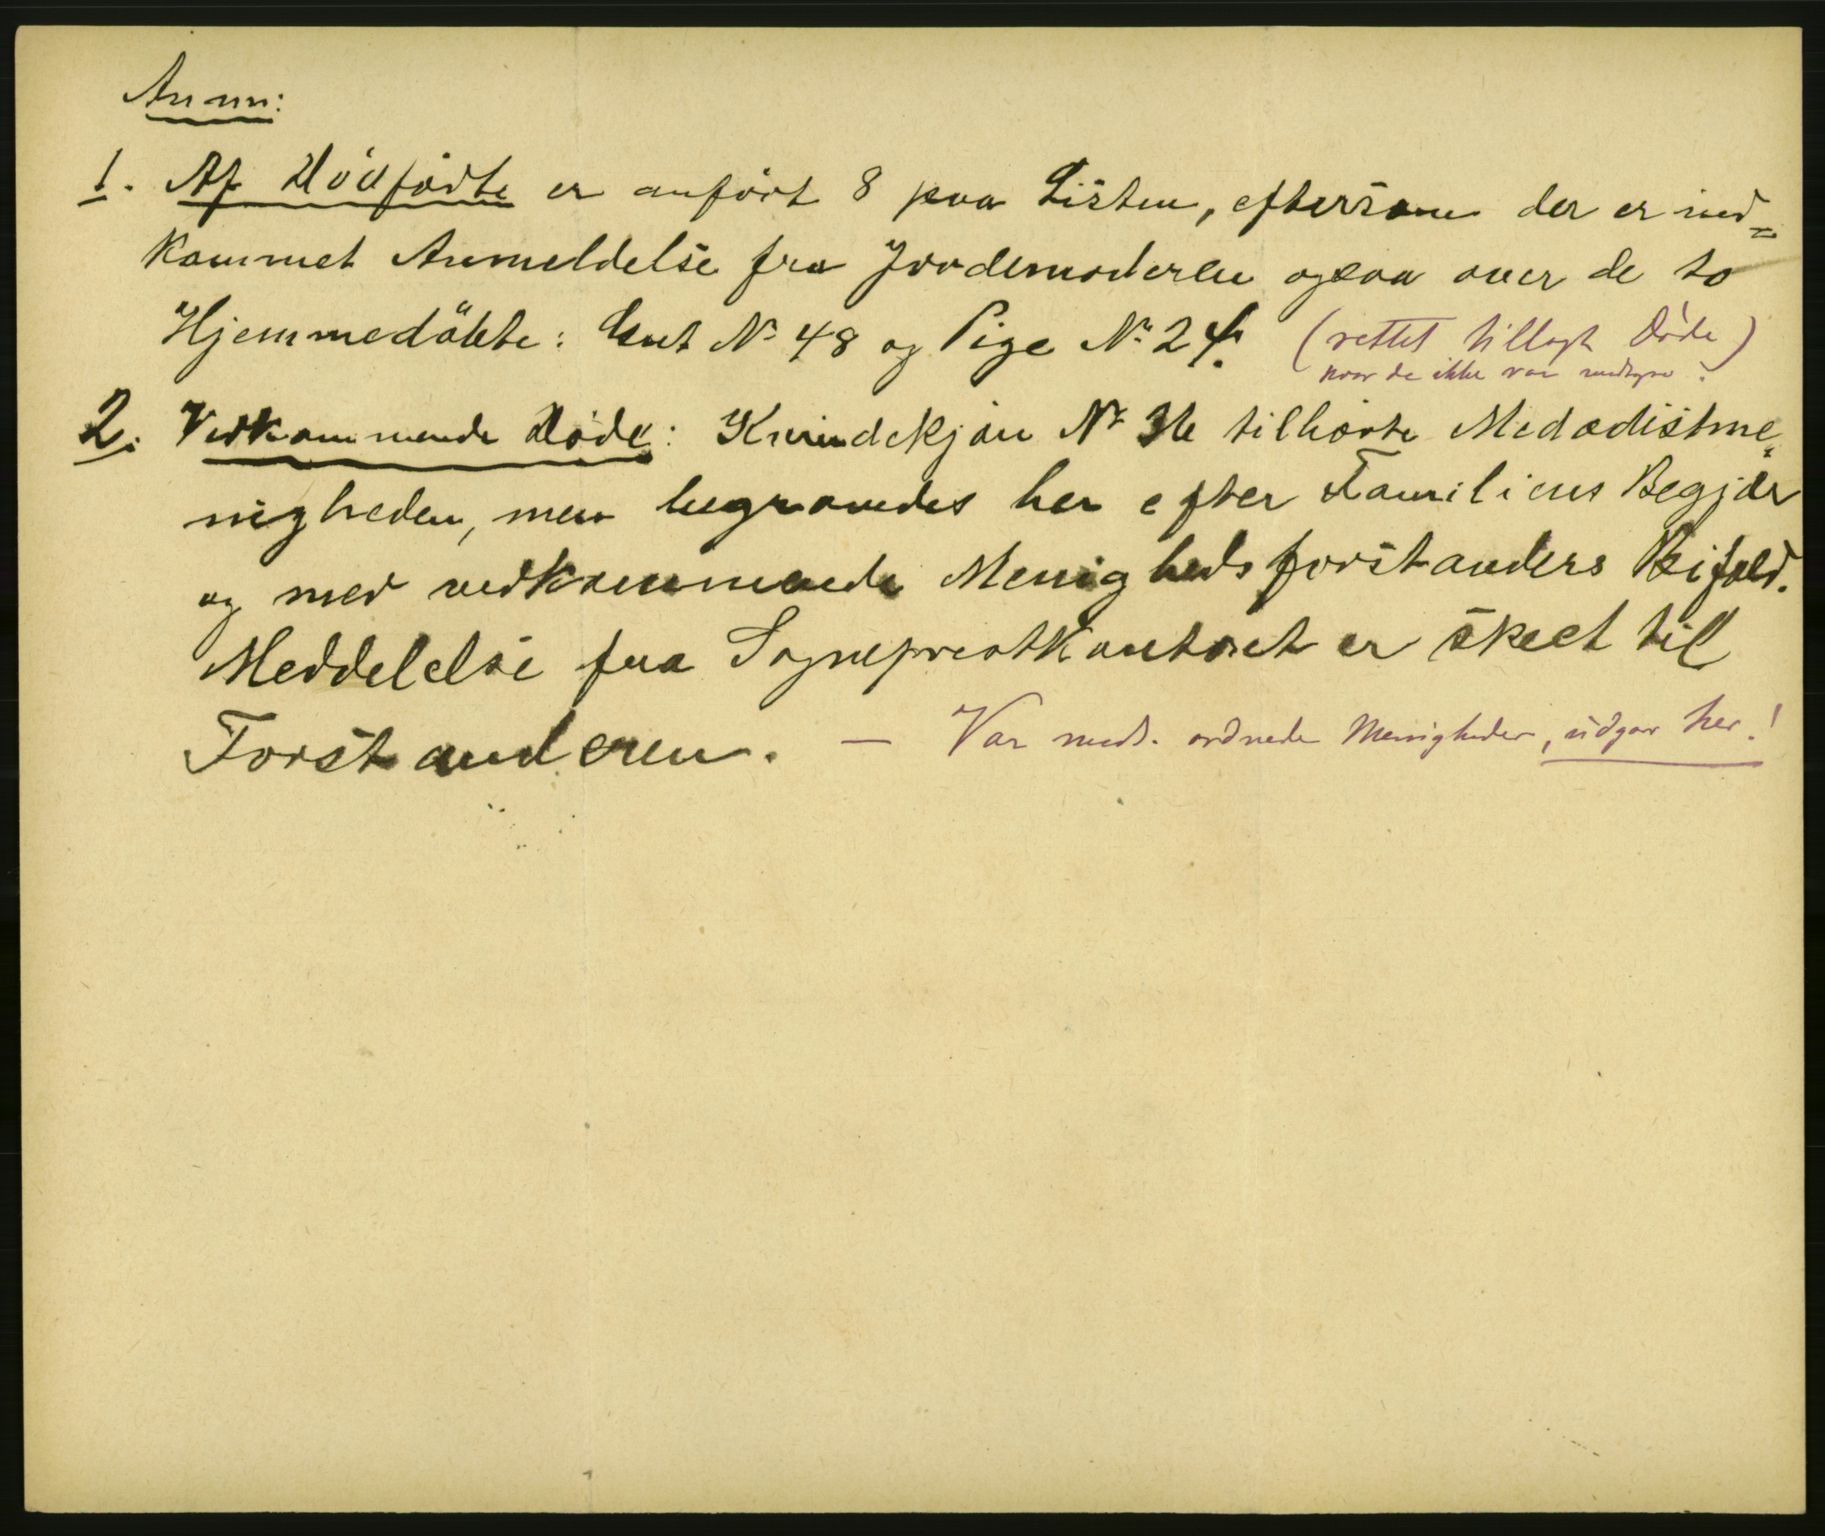 Anm:
1. Af Dödfödte er anfört 8 paa Listen, eftersom der er ind=
kommet Anmeldelse fra Jordemoderen ogsaa over de to
Hjemmedöbte: Gut Nr 48 og Pige Nr 24. (rettet tillagt Döde)
hvor de ikke var medtagne.
2. Vedkommende Döde: Kvindekjön Nr 36 tilhörte Medodistme=
nigheden, men begravedes her efter Familiens Begjær
og med vedkommende Menighedsforstanders Bifald.
Meddelelse fra Sogneprestkontoret er skeet til
Forstanderen. — Var meds. ordnede Menigheder, udgaar her!